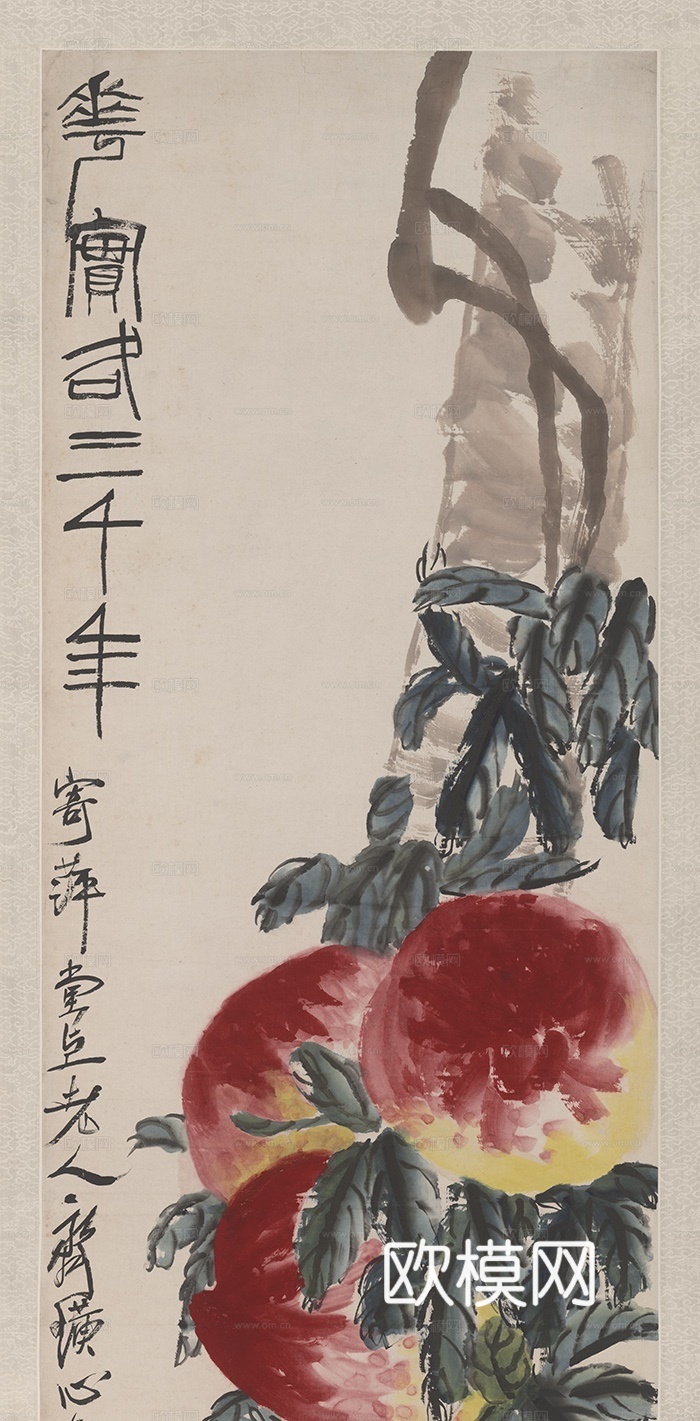 華實各三千年
寄萍堂上老人齊璜心
欧模网